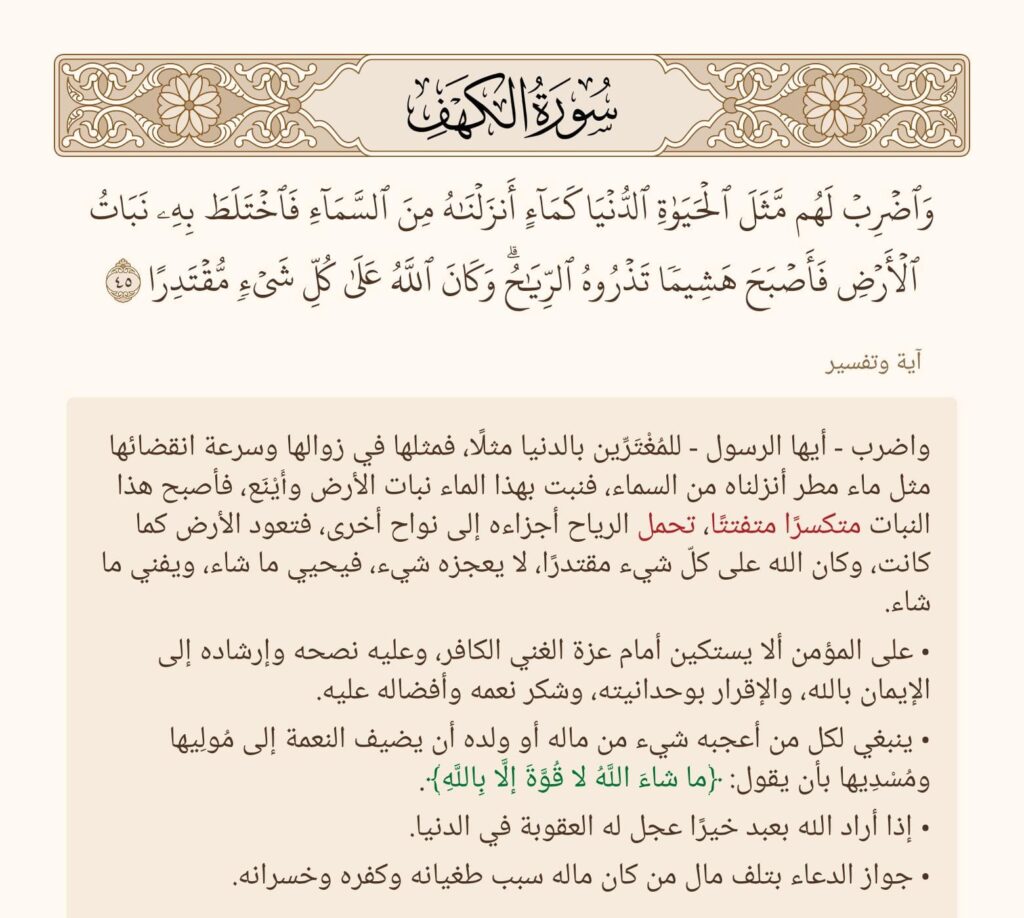 سُورَةُ الكَهْفِ
وَٱضْرِبْ لَهُم مَّثَلَ ٱلْحَيَوٰةِ ٱلدُّنْيَا كَمَآءٍ أَنزَلْنَـٰهُ مِنَ ٱلسَّمَآءِ فَٱخْتَلَطَ بِهِۦ نَبَاتُ
ٱلْأَرْضِ فَأَصْبَحَ هَشِيمًا تَذْرُوهُ ٱلرِّيَـٰحُ ۗ وَكَانَ ٱللَّهُ عَلَىٰ كُلِّ شَىْءٍ مُّقْتَدِرًا ٤٥
آية وتفسير
واضرب - أيها الرسول - للمُغْتَرِّين بالدنيا مثلًا، فمثلها في زوالها وسرعة انقضائها
مثل ماء مطر أنزلناه من السماء، فنبت بهذا الماء نبات الأرض وأيْنَع، فأصبح هذا
النبات متكسرًا متفتتًا، تحمل الرياح أجزاءه إلى نواح أخرى، فتعود الأرض كما
كانت، وكان الله على كلّ شيء مقتدرًا، لا يعجزه شيء، فيحيي ما شاء، ويفني ما
شاء.
• على المؤمن ألا يستكين أمام عزة الغني الكافر، وعليه نصحه وإرشاده إلى
الإيمان بالله، والإقرار بوحدانيته، وشكر نعمه وأفضاله عليه.
• ينبغي لكل من أعجبه شيء من ماله أو ولده أن يضيف النعمة إلى مُولِيها
ومُسْدِيها بأن يقول: ﴿ما شاءَ اللَّهُ لا قُوَّةَ إلَّا بِاللَّهِ﴾.
• إذا أراد الله بعبد خيرًا عجل له العقوبة في الدنيا.
• جواز الدعاء بتلف مال من كان ماله سبب طغيانه وكفره وخسرانه.